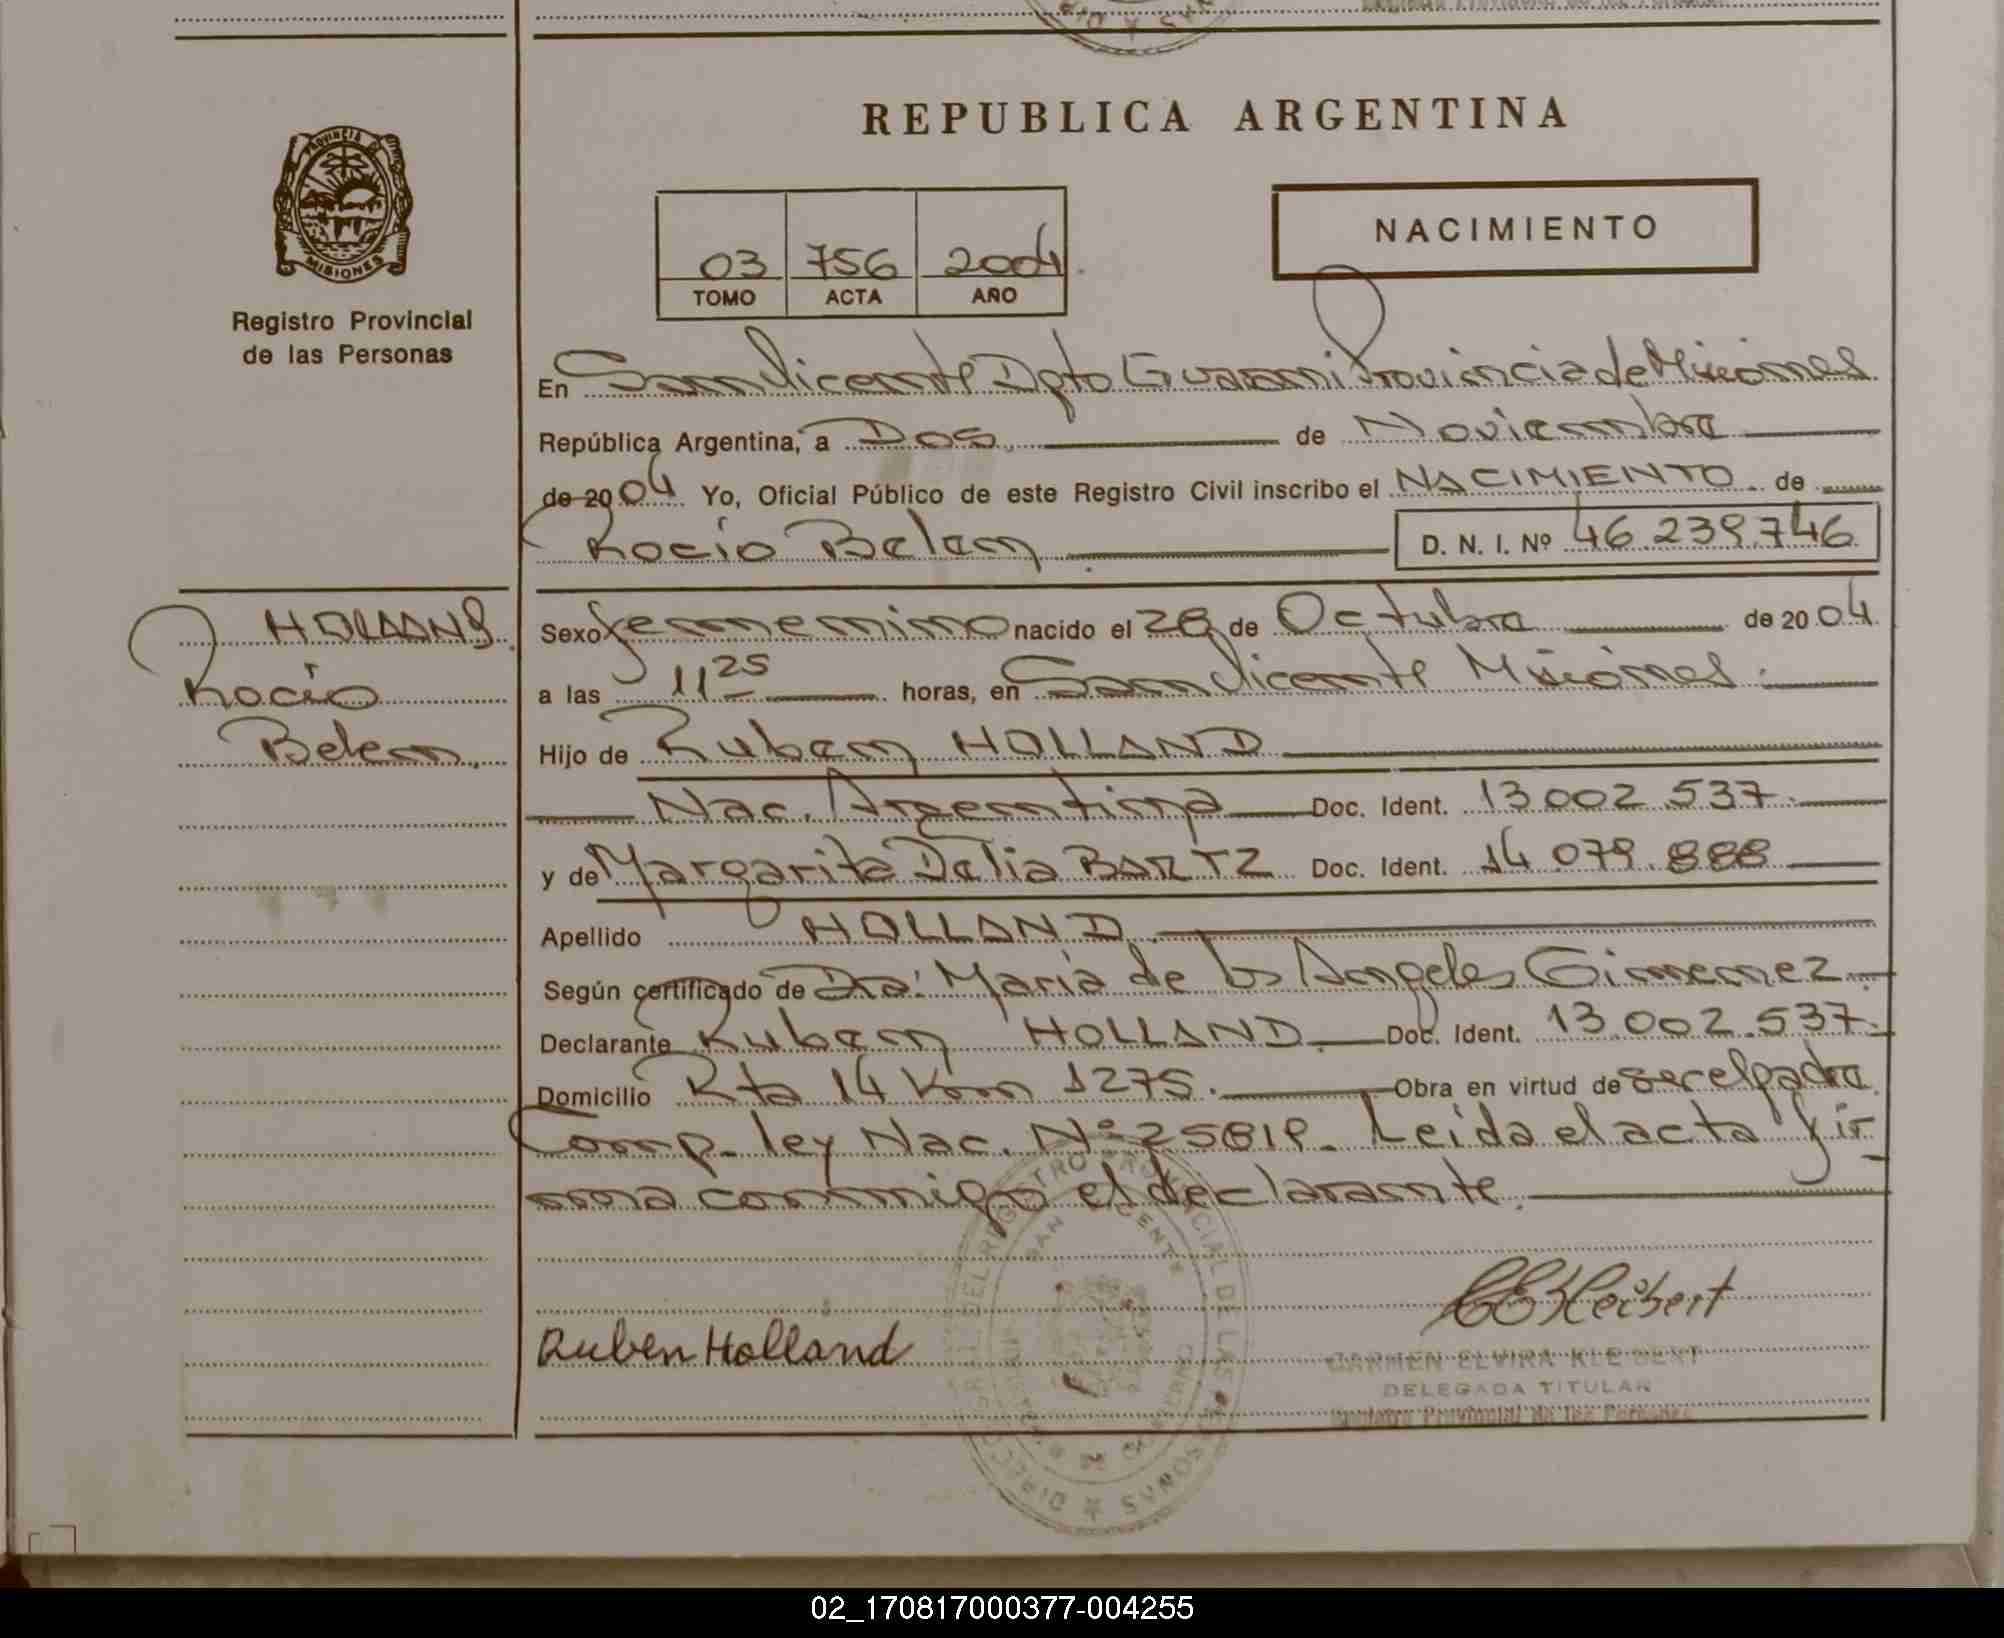 REPUBLICA ARGENTINA
PROVINCIA DE
MISIONES
Registro Provincial
de las Personas
NACIMIENTO
03 756 2004
TOMO ACTA AÑO
En San Vicente Dpto Guarani Provincia de Misiones
República Argentina, a Dos de Noviembre
de 2004 Yo, Oficial Público de este Registro Civil inscribo el NACIMIENTO de
Rocio Belen D. N. I. Nº 46.239.746
HOLLAND
Rocio
Belen
Sexo femenino nacido el 28 de Octubre de 2004
a las 11 25 horas, en San Vicente Misiones
Hijo de Ruben HOLLAND
Nac. Argentina Doc. Ident. 13.002.537
y de Margarita Delia BARTZ Doc. Ident. 14.079.888
Apellido HOLLAND
Según certificado de Dra: Maria de los Angeles Gimenez
Declarante Ruben HOLLAND Doc. Ident. 13.002.537
Domicilio Rta 14 Km 1275. Obra en virtud de ser el padre
Comp. ley Nac. Nº 25819. Leida el acta fir
ma conmigo el declarante.
Ruben Holland
CEKleibert
CARMEN ELVIRA
DELEGADA TITULAR
Registro Provincial de las Personas
SAN VICENTE
02_170817000377-004255